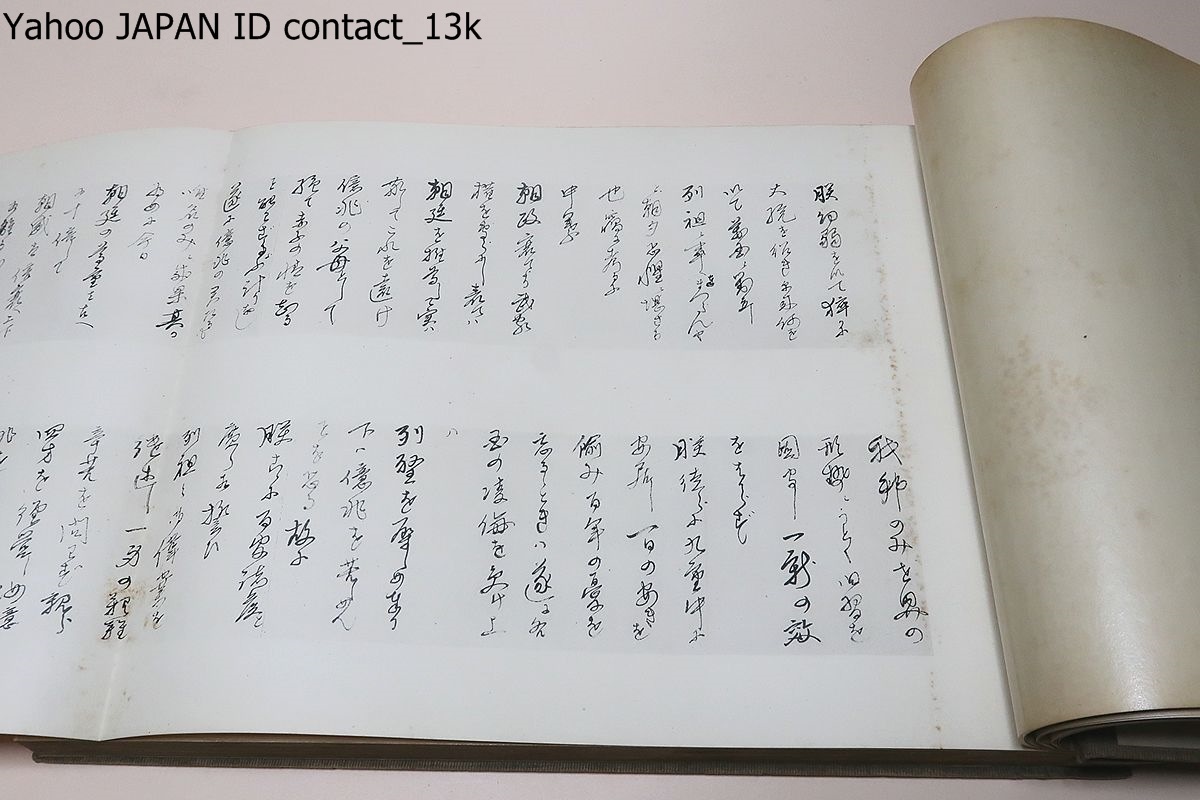 Yahoo JAPAN ID contact_13k
朕幼弱を以て猝に
大統を紹き爾来何を
以て萬国に対立し
列祖に事へ奉らんや
と朝夕恐懼に堪さる
也竊に考るに
中葉
朝政衰てより武家
権を専らにし表ハ
朝廷を推尊して実ハ
敬してこれを遠け
億兆の父母として
絶て赤子の情を知る
こと能さるやふ計りなし
遂に億兆の君たるも
唯名のみに成果其か
為に今日
朝廷の尊重ハ古へ
倍して
朝威ハ倍衰へ上下
我邦のみ世界の
形勢にうとく旧習を
固守し一新の效
をはからず
朕徒らに九重中に
安居し一日の安きを
偸み百年の憂を
忘るときハ遂に各
国の凌侮を受け上
ハ
列聖を辱め奉り
下ハ億兆を苦めん
ことを恐る故に
朕ここに百官諸侯と
広く相誓ひ
列祖の御偉業を
継述し一身の艱難
辛苦を問ず親ら
四方を経営し汝億
兆を